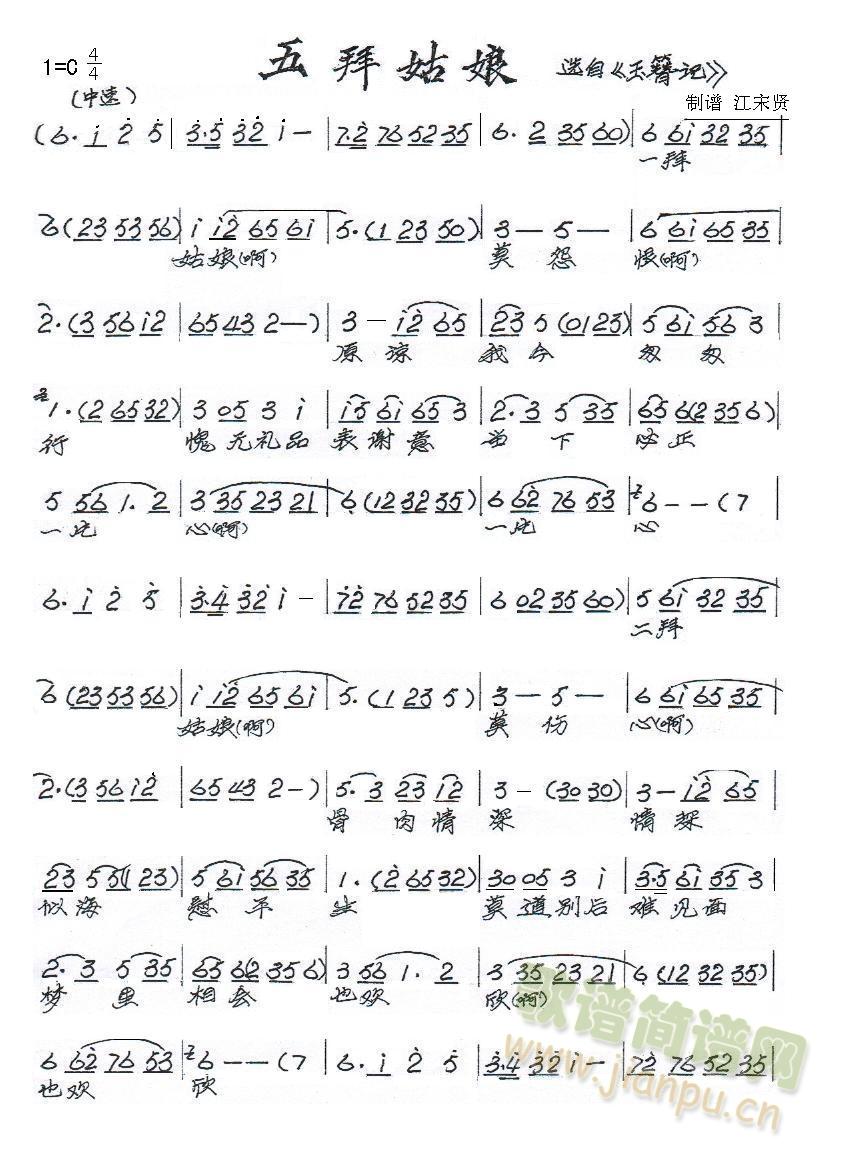 五拜姑娘
1=C 4/4
选自《玉簪记》
(中速)
制谱 江宋贤
(6. i 2 5 | 3.5 32 i — | 7.2 76 52 35 | 6. 2 35 60) | 6 6i 32 35 |
一拜
6 (23 53 56) | i i2 65 6i | 5. (1 23 50) | 3 — 5 — | 6 6i 65 35 |
姑娘(啊) 莫 怨 恨(啊)
2. (3 56 i2 | 65 43 2 —) | 3 — i2 65 | 23 5 (01 23) | 5 6i 56 3 |
原谅 我今 匆 匆
1. (2 65 32) | 3 05 3 i | i5 6i 65 3 | 2. 3 5 35 | 65 6(2 35 6) |
行 愧 无礼品 表谢意 当 下 必正
5 56 1. 2 | 3 35 23 21 | 6 (12 32 35) | 6 62 76 53 | 6 — — (7
一片 心(啊) 一片 心
6. i 2 5 | 3.4 32 i — | 72 76 52 35 | 6 02 35 60) | 5 6i 32 35 |
二拜
6 (23 53 56) | i i2 65 6i | 5. (1 23 5) | 3 — 5 — | 6 6i 65 35 |
姑娘(啊) 莫 伤 心(啊)
2. (3 56 i2 | 65 43 2 —) | 5. 3 23 i2 | 3 — (30 30) | 3 — i2 65 |
骨 肉情 深 情深
23 5 5(1 23) | 5 6i 56 35 | 1. (2 65 32) | 30 05 3 i | 3.5 6i 35 3 |
似海 慰 平 生 莫道别后 难见面
2. 3 5 35 | 65 6(2 35 6) | 3 56 1. 2 | 3 35 23 21 | 6 (12 32 35) |
梦 里 相会 也欢 欣(啊)
6 62 76 53 | 6 — — (7 | 6. i 2 5 | 3.4 32 i — | 72 76 52 35 |
也欢 欣
歌谱简谱网
www.jianpu.cn